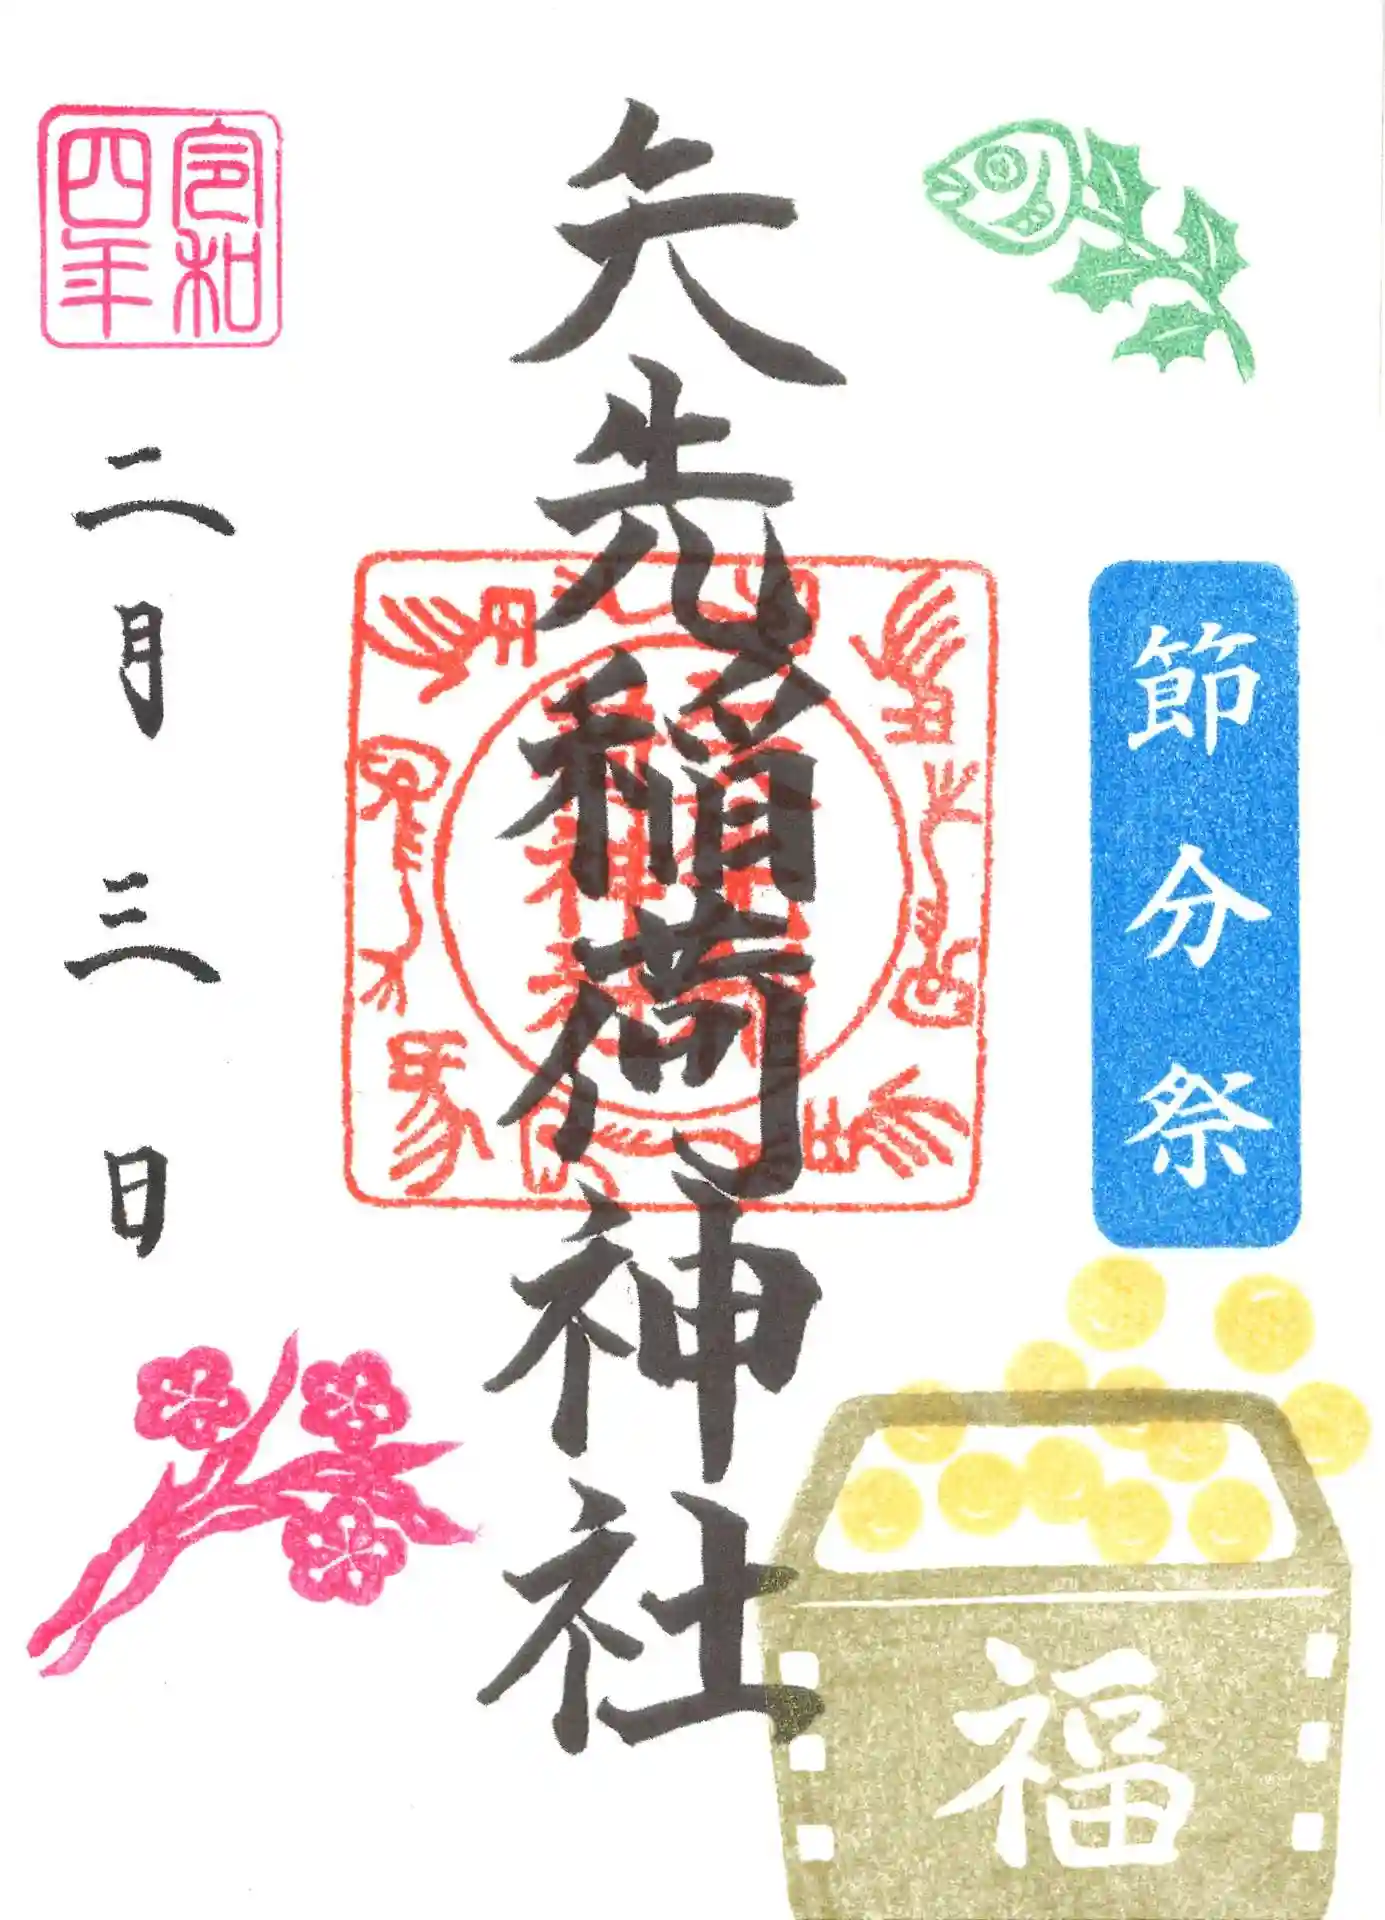 節分祭
福
矢先稲荷神社
令和
四年
二月三日